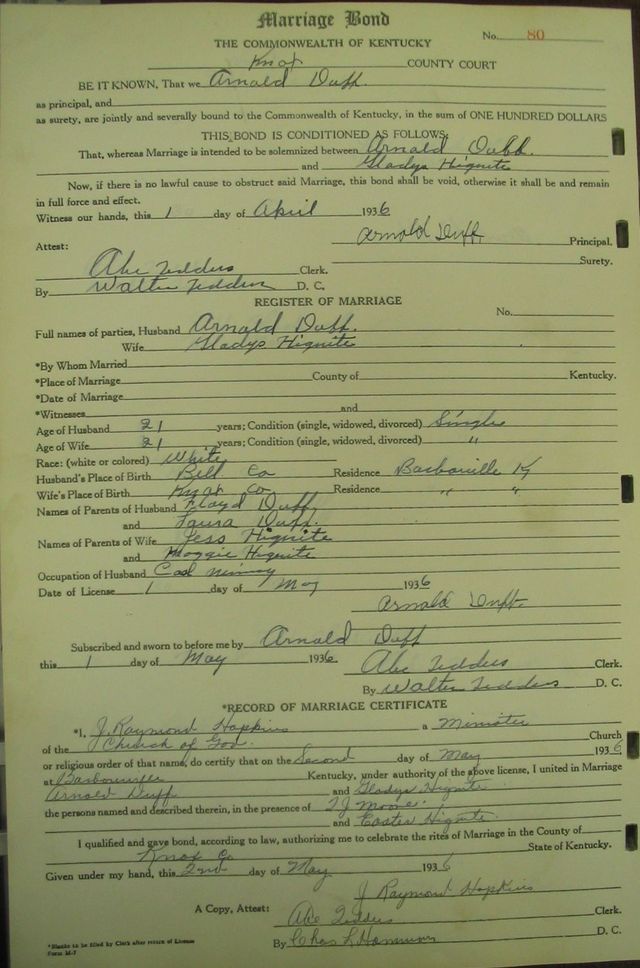 Marriage Bond
No. 80
THE COMMONWEALTH OF KENTUCKY
Knox COUNTY COURT
BE IT KNOWN, That we Arnold Duff.
as principal, and
as surety, are jointly and severally bound to the Commonwealth of Kentucky, in the sum of ONE HUNDRED DOLLARS
THIS BOND IS CONDITIONED AS FOLLOWS:
That, whereas Marriage is intended to be solemnized between Arnold Duff.
and Gladys Hignite
Now, if there is no lawful cause to obstruct said Marriage, this bond shall be void, otherwise it shall be and remain
in full force and effect.
Witness our hands, this 1 day of April 1936
Arnold Duff, Principal.
Attest:
Surety.
Abe Tedders Clerk.
By Walter Tedders D. C.
REGISTER OF MARRIAGE
No.
Full names of parties, Husband Arnold Duff.
Wife Gladys Hignite
*By Whom Married
*Place of Marriage County of Kentucky.
*Date of Marriage
*Witnesses and
Age of Husband 21 years; Condition (single, widowed, divorced) Single
Age of Wife 21 years; Condition (single, widowed, divorced) "
Race: (white or colored) White
Husband's Place of Birth Bell Co Residence Barbourville Ky
Wife's Place of Birth Knox Co Residence " "
Names of Parents of Husband Floyd Duff
and Laura Duff.
Names of Parents of Wife Jess Hignite
and Maggie Hignite
Occupation of Husband Coal mining
Date of License 1 day of May 1936
Arnold Duff.
Subscribed and sworn to before me by Arnold Duff
this 1 day of May 1936 Abe Tedders Clerk.
By Walter Tedders D. C.
*RECORD OF MARRIAGE CERTIFICATE
*I, J. Raymond Hopkins a Minister
of the Church of God. Church
or religious order of that name, do certify that on the Second day of May 1936
at Kentucky, under authority of the above license, I united in Marriage
Arnold Duff and Gladys Hignite
the persons named and described therein, in the presence of T J Moore.
and Easter Hignite
I qualified and gave bond, according to law, authorizing me to celebrate the rites of Marriage in the County of
Knox Co State of Kentucky.
Given under my hand, this 2nd day of May 1936
J Raymond Hopkins
A Copy, Attest: Abe Tedders Clerk.
By Chas L D. C.
*Blanks to be filled by Clerk after return of License
Form M-7